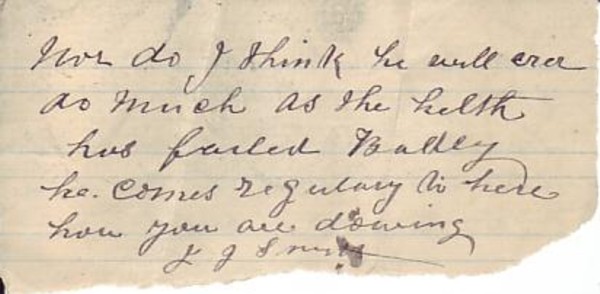 Nor do I think he will ever
do much as the helth
has failed Badley
he comes regulary to here
how you are dowing
J J Smith